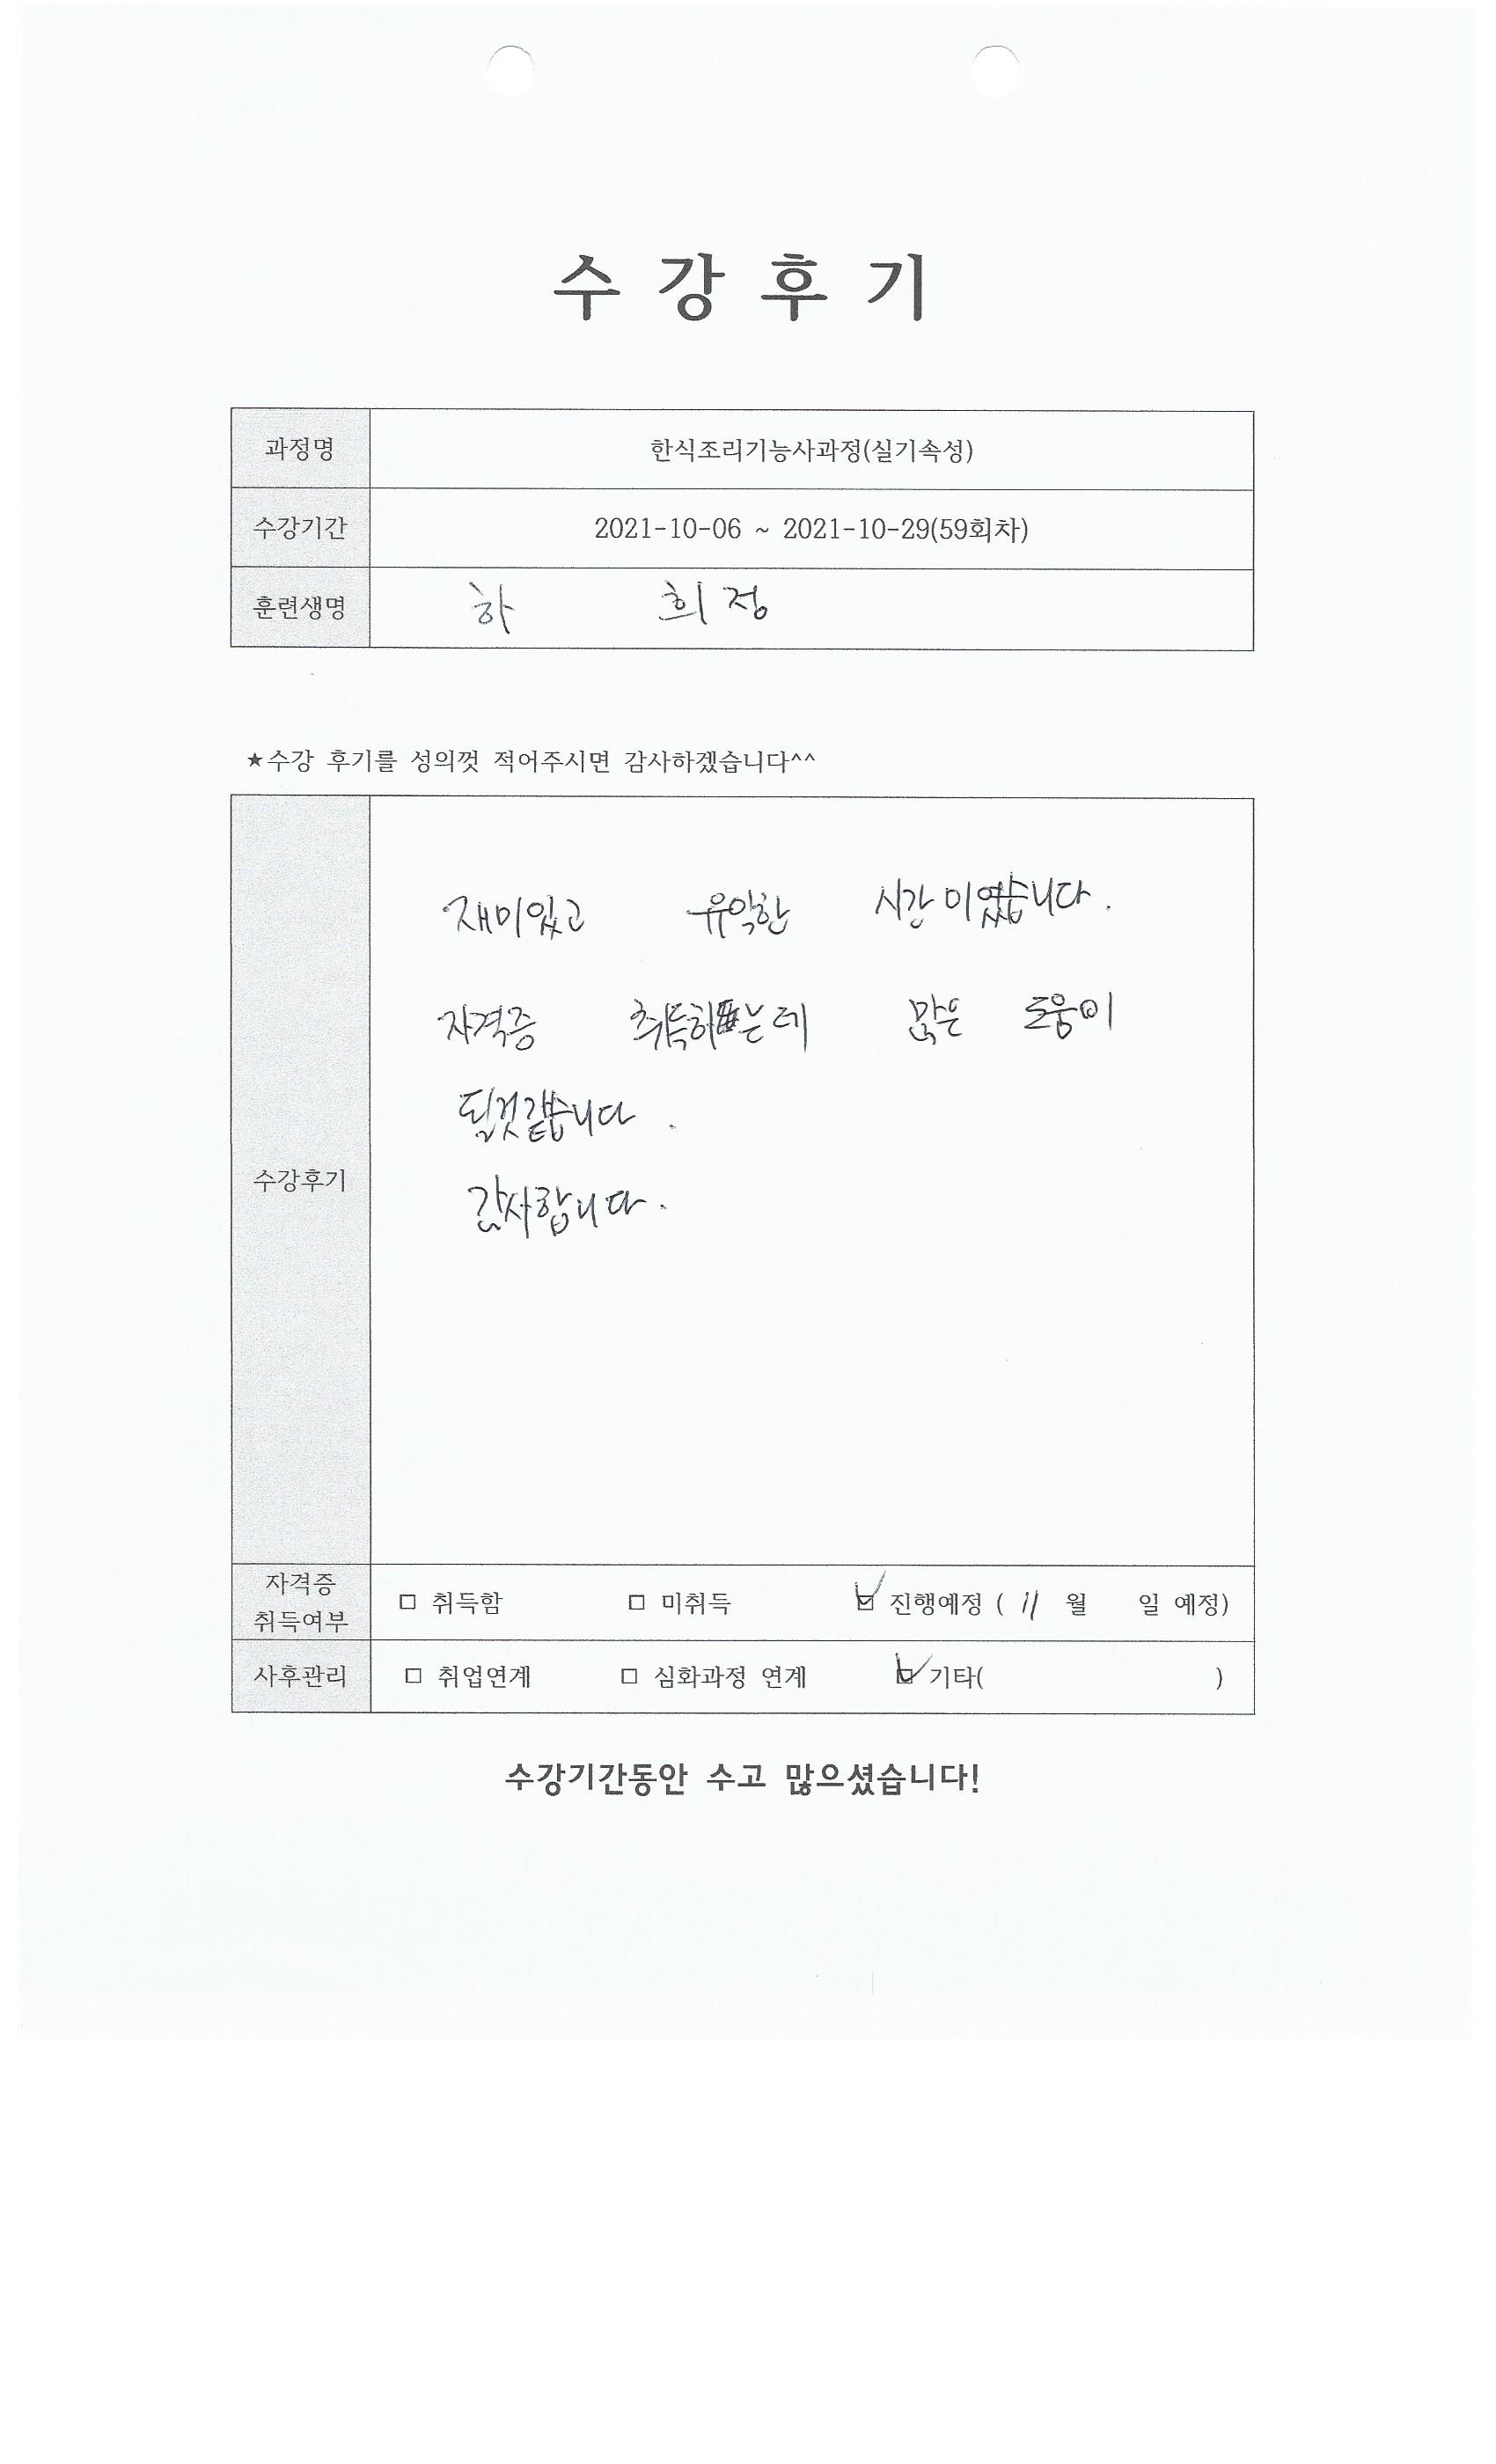 수 강 후 기
과정명 한식조리기능사과정(실기속성)
수강기간 2021-10-06 ~ 2021-10-29(59회차)
훈련생명 하 희정
★수강 후기를 성의껏 적어주시면 감사하겠습니다^^
수강후기
재미있고 유익한 시간이였습니다.
자격증 취득하는데 많은 도움이
될것같습니다.
감사합니다.
자격증 취득여부 □ 취득함 □ 미취득 ☑ 진행예정 ( 11 월 일 예정)
사후관리 □ 취업연계 □ 심화과정 연계 ☑ 기타( )
수강기간동안 수고 많으셨습니다!